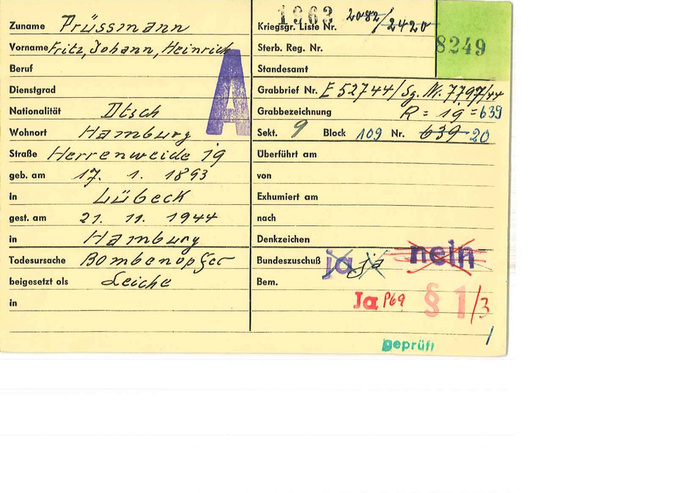 Zuname Prüssmann
Vorname Fritz, Johann, Heinrich
Beruf
Dienstgrad
Nationalität Dtsch
Wohnort Hamburg
Straße Herrenweide 19
geb. am 17. 1. 1893
in Lübeck
gest. am 21. 11. 1944
in Hamburg
Todesursache Bombenopfer
beigesetzt als Leiche
in
A
1963 2082/2420
Kriegsgr. Liste Nr.
8249
Sterb. Reg. Nr.
Standesamt
Grabbrief Nr. E 52744/Sg. Nr. 7797/44
Grabbezeichnung R = 19 = 639
Sekt. 9 Block 109 Nr. 639 20
Überführt am
von
Exhumiert am
nach
Denkzeichen
Bundeszuschuß ja ja nein
Bem.
Ja P69 § 1/3
geprüft